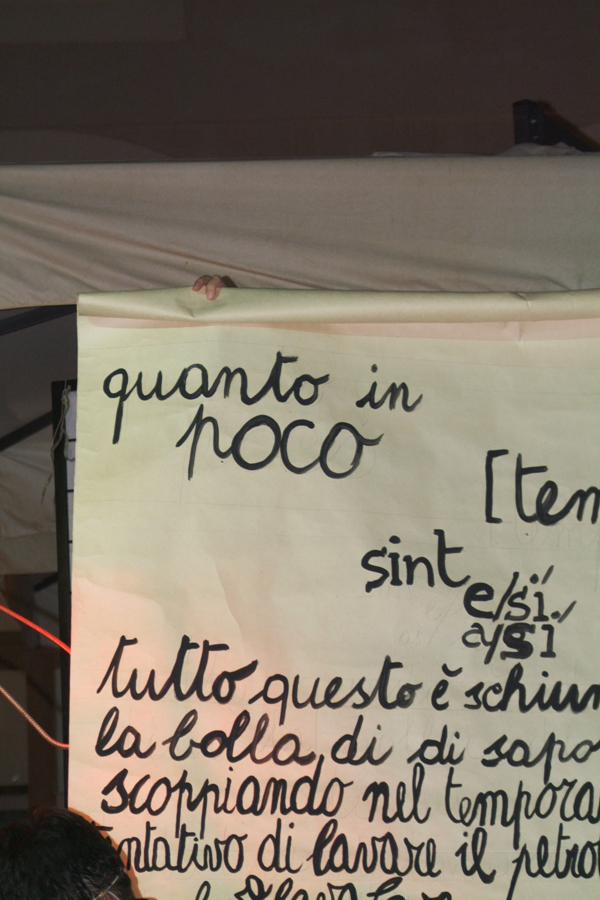 quanto in
poco
[tem
sint
e/si
a/si
tutto questo è schium
la bolla di di sapo
scoppiando nel tempora
tentativo di lavare il petrol